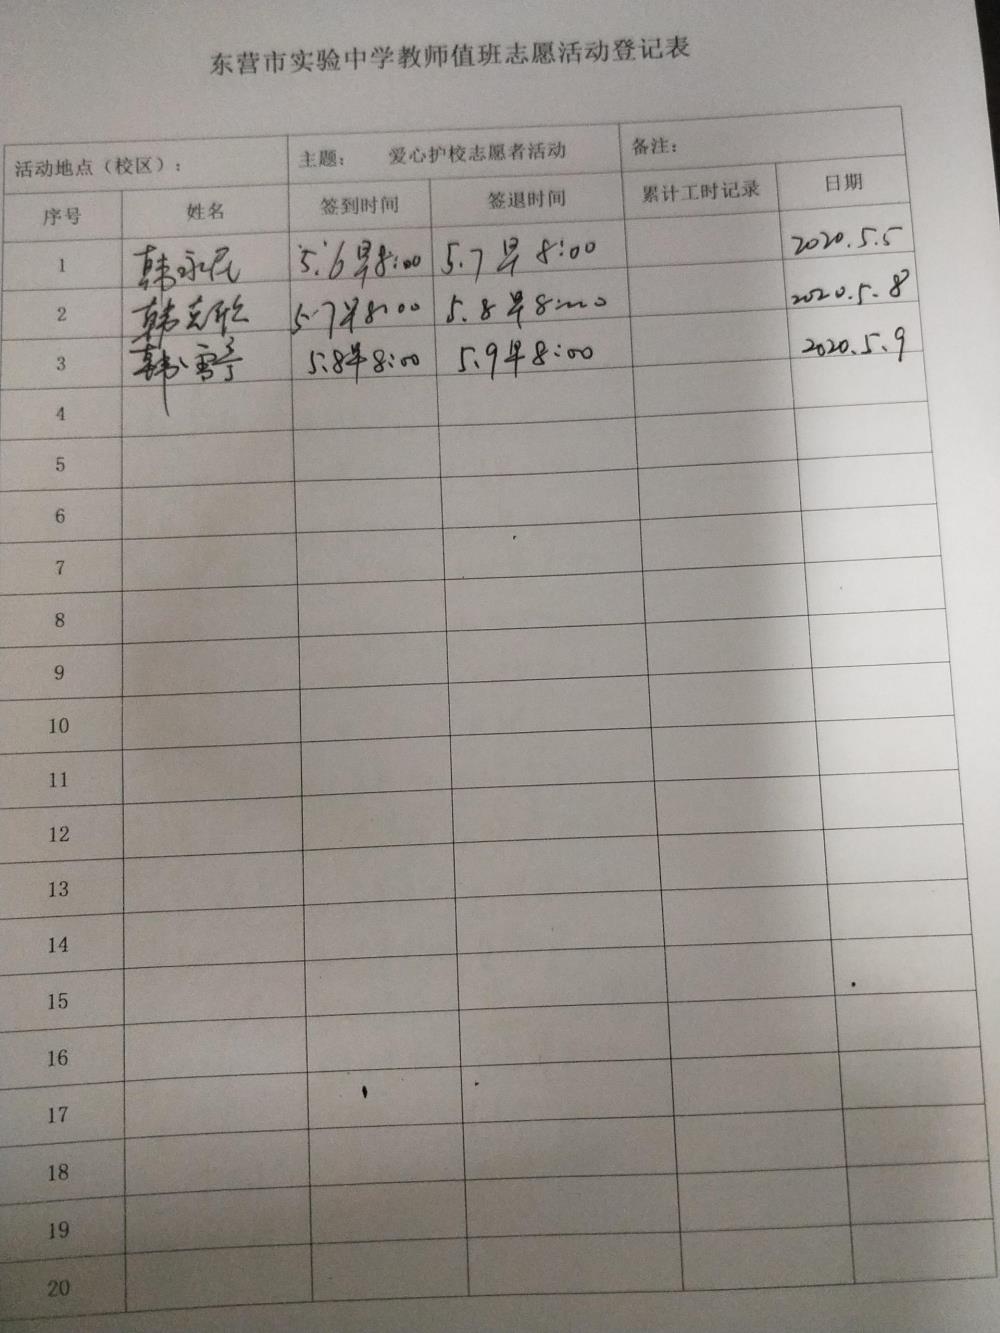 东营市实验中学教师值班志愿活动登记表
活动地点（校区）： 主题： 爱心护校志愿者活动 备注：
序号 姓名 签到时间 签退时间 累计工时记录 日期
1 韩永 5.6早8:00 5.7早8:00 2020.5.5
2 韩 5.7早8:00 5.8早8:00 2020.5.8
3 韩雪 5.8早8:00 5.9早8:00 2020.5.9
4
5
6
7
8
9
10
11
12
13
14
15
16
17
18
19
20